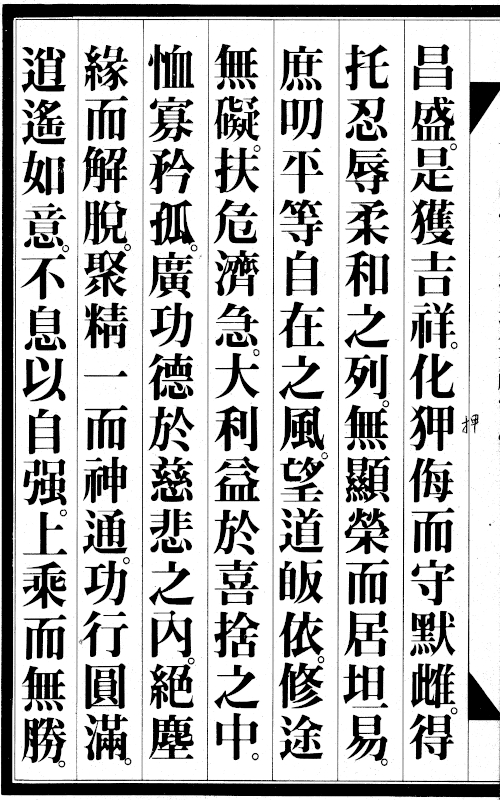 昌盛。是獲吉祥。化狎侮而守默雌。得
押
托忍辱柔和之列。無顯榮而居坦易。
庶叨平等自在之風。望道皈依。修途
無礙。扶危濟急。大利益於喜捨之中。
恤寡矜孤。廣功德於慈悲之內。絕塵
緣而解脫。聚精一而神通。功行圓滿。
逍遙如意。不息以自强。上乘而無勝。